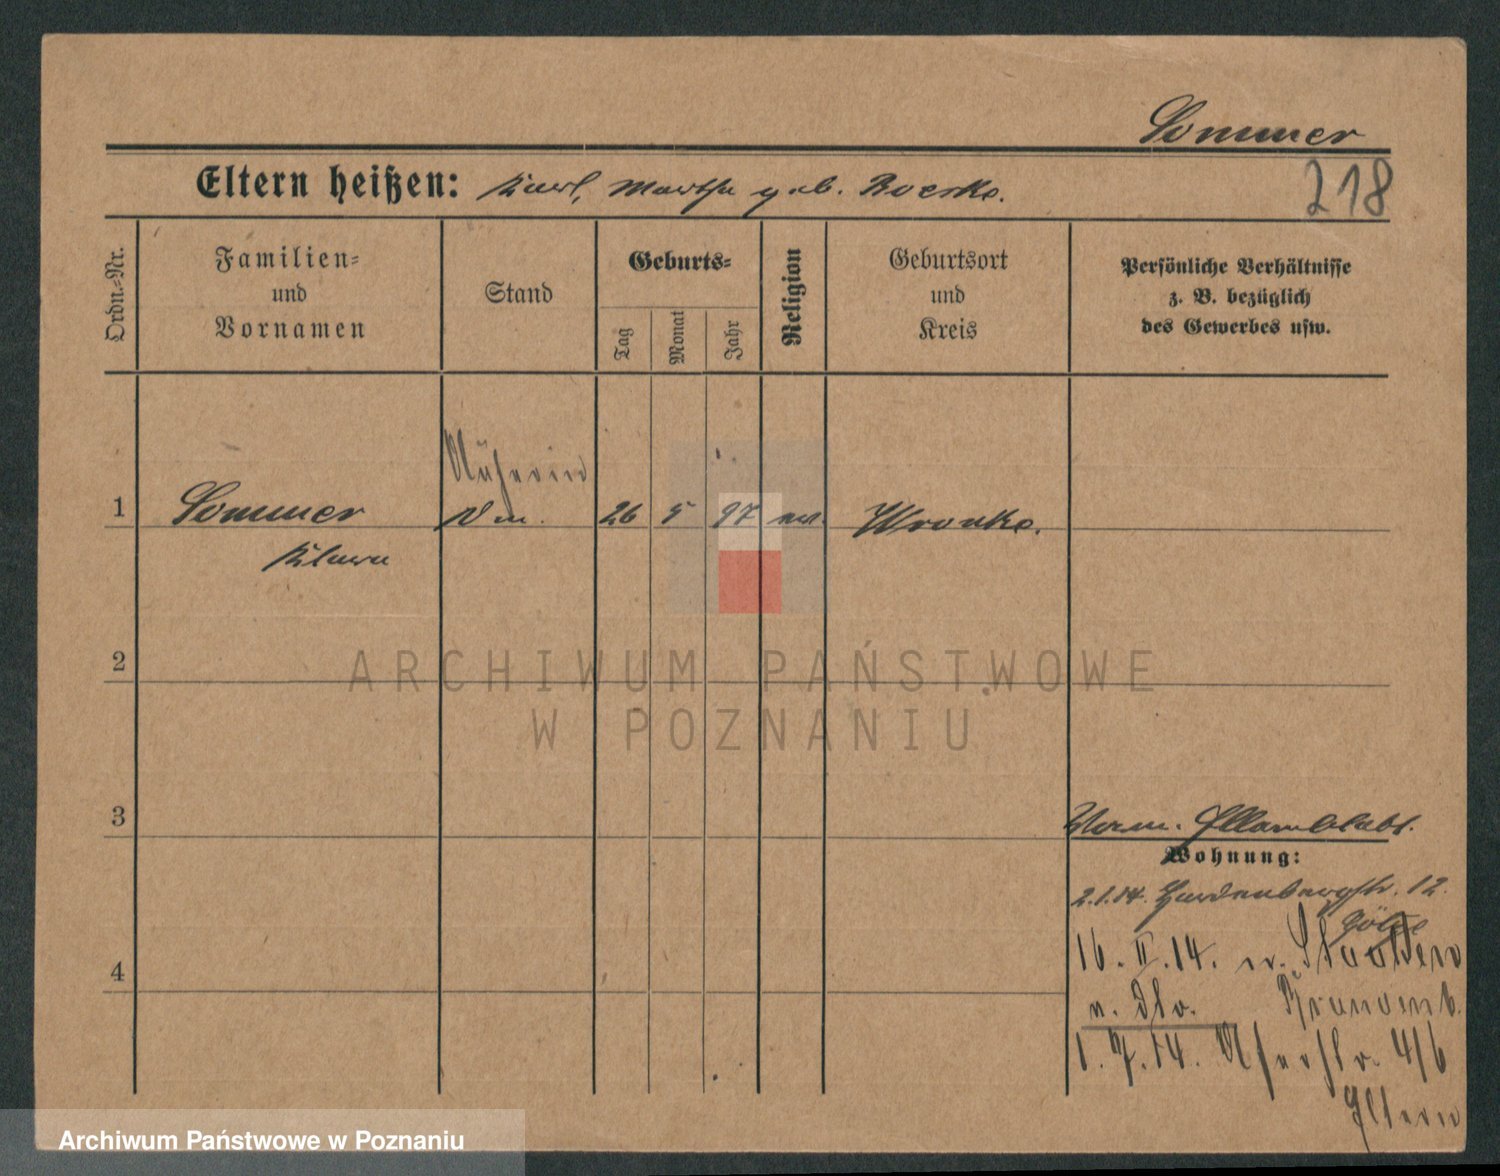 Sommer
218
Eltern heißen: Karl, Martha geb. Roeske.
Ordn.-Nr.
Familien-
und
Vornamen
Stand
Geburts-
Tag
Monat
Jahr
Religion
Geburtsort
und
Kreis
Persönliche Verhältnisse
z. B. bezüglich
des Gewerbes usw.
Näherin
1 Sommer 26 5 97 ev. Wronke.
Klara
2
ARCHIWUM PAŃSTWOWE
W POZNANIU
3
Wohnung:
2.1.14. Hardenbergstr. 12.
16. II. 14. n. Staaken
4
Brandenb.
1. 7. 14. 4/6
Eltern
Archiwum Państwowe w Poznaniu